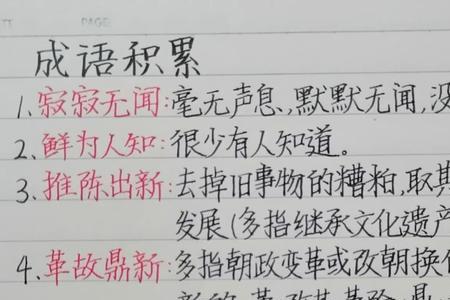 PAGE
成语积累
1.寂寂无闻:毫无声息,默默无闻,没
2.鲜为人知:很少有人知道。
3.推陈出新:去掉旧事物的糟粕,取其
发展(多指继承文化遗产
4.革故鼎新:多指朝政变革或改朝换